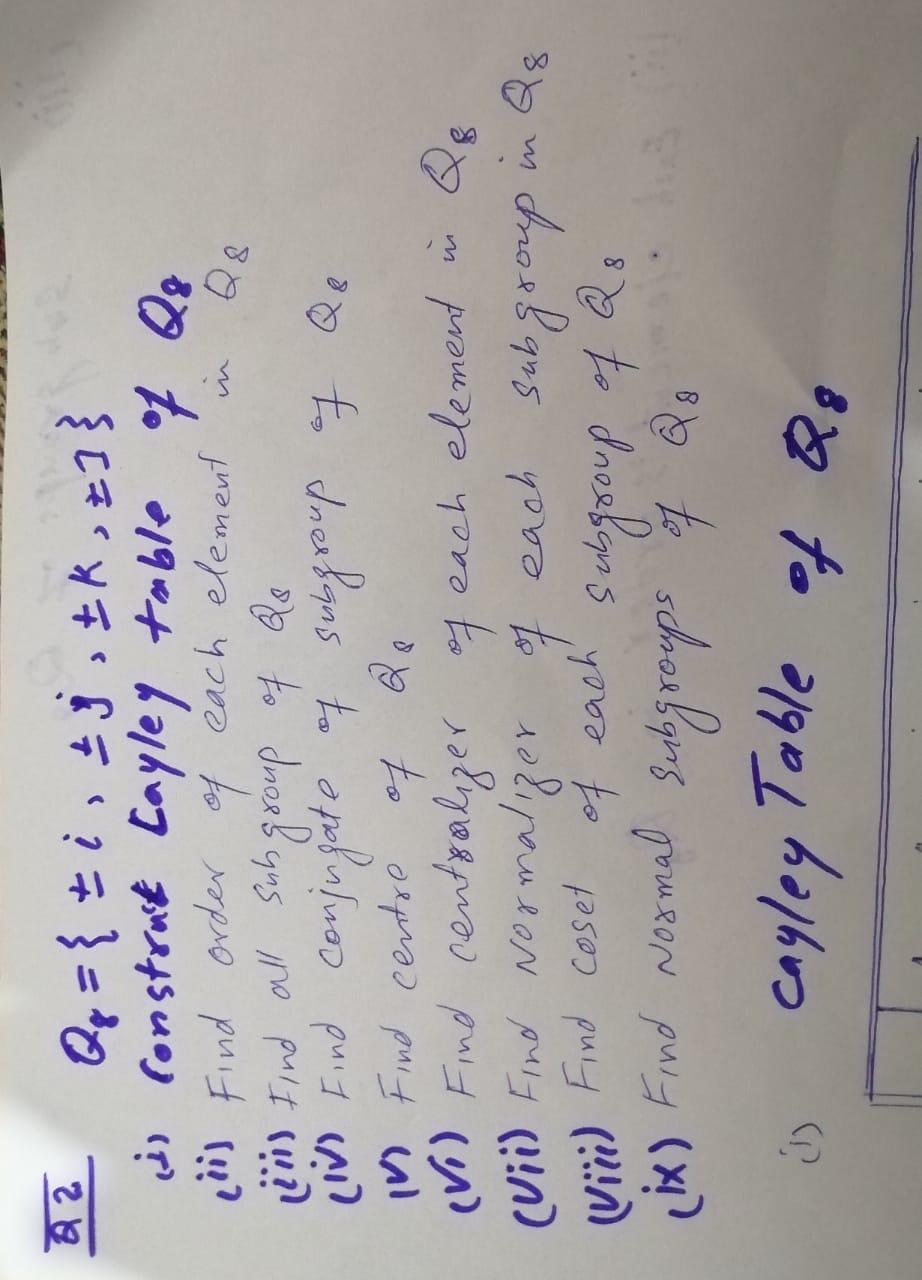 Q2 Q8 = { ± i, ± j, ± k, ± 1 }
(i) Construct Cayley table of Q8
(ii) Find order of each element in Q8
(iii) Find all subgroup of Q8
(iv) Find conjugate of subgroup of Q8
(v) Find centre of Q8
(vi) Find centralizer of each element in Q8
(vii) Find Normalizer of each subgroup in Q8
(viii) Find coset of each subgroup of Q8
(ix) Find Normal subgroups of Q8
(i) Cayley Table of Q8